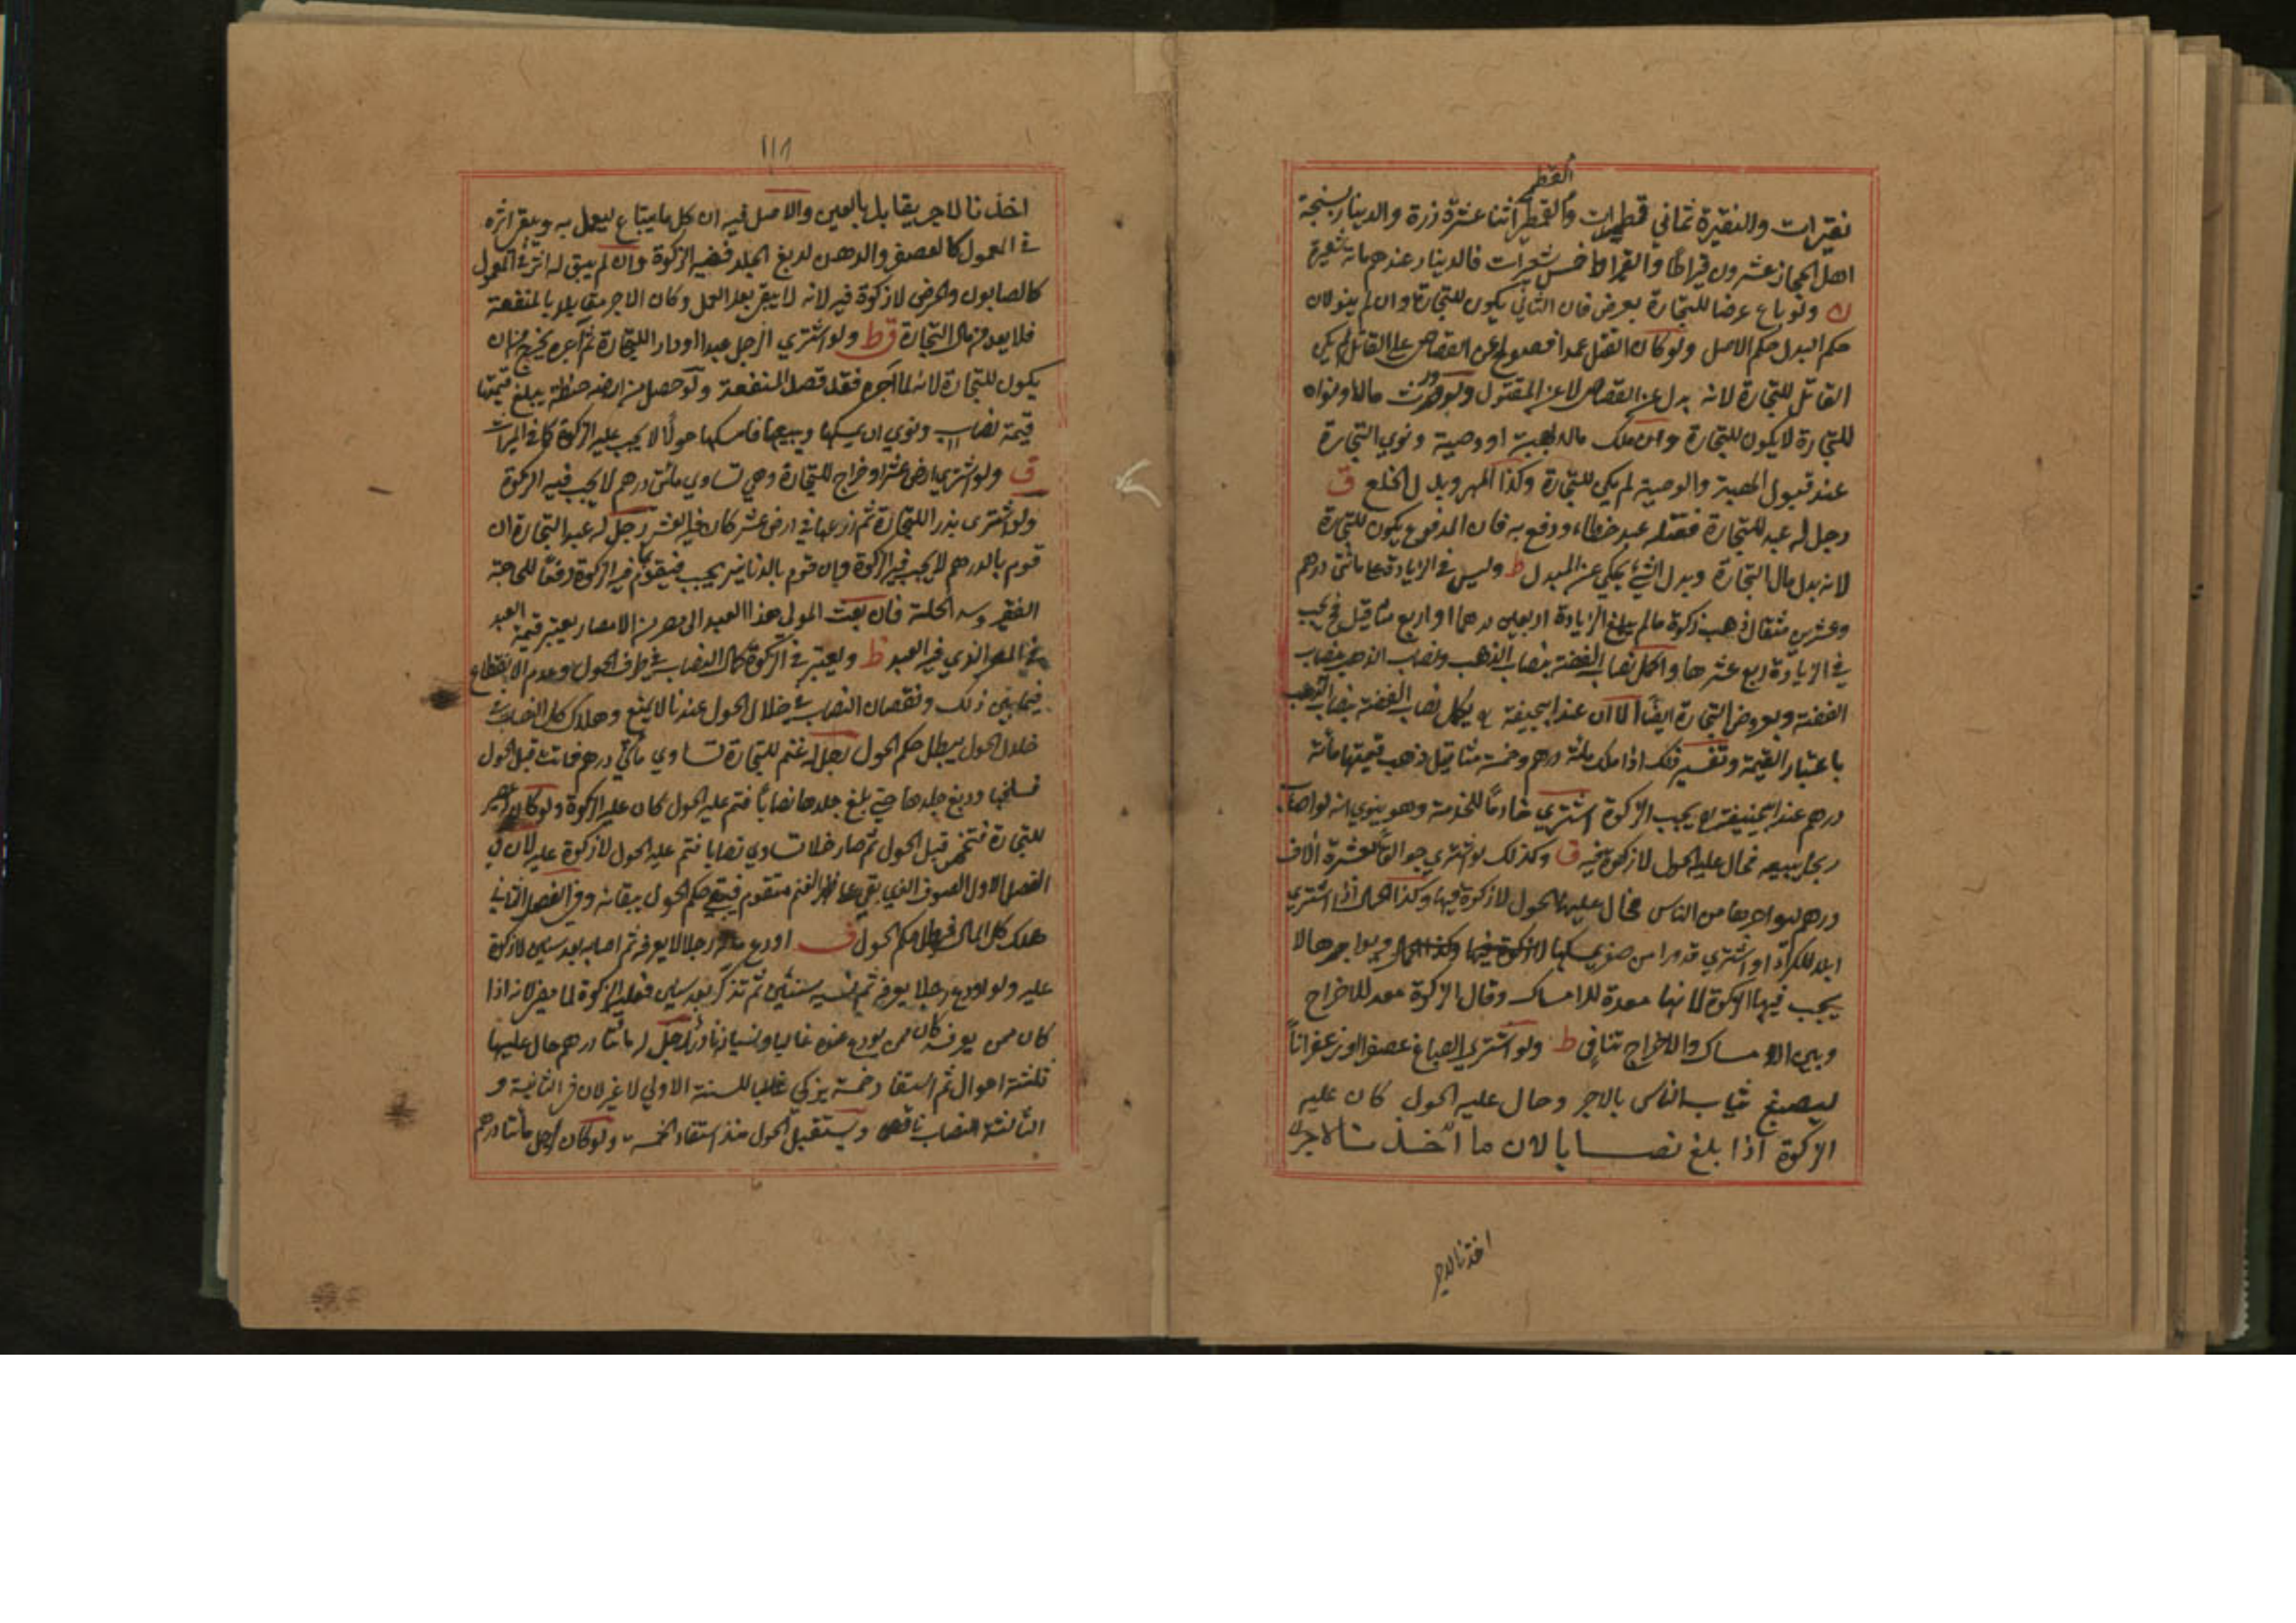 القطمير
نقيرات والنقيرة ثماني قطميرات والقطمير اثنا عشرة ذرة والدينار بسنجة
اهل الحجاز عشرون قيراطا والقيراط خمس شعيرات فالدينار عندهم مائة شعيرة
ك ولو باع عرضا للتجارة بعرض فان الثاني يكون للتجارة وان لم ينو لان
حكم البدل حكم الاصل ولو كان القتل عمدا فصولح عن القصاص على القاتل لم يكن
القاتل للتجارة لانه بدل عن القصاص لا عن المقتول ولو ورث مالا ونواه
للتجارة لا يكون للتجارة وان ملك مالا بهبة او وصية ونوي التجارة
عند قبول الهبة والوصية لم يكن للتجارة وكذا المهر وبدل الخلع ق
رجل له عبد للتجارة فقتله عبد خطاء ودفع به فان المدفوع يكون للتجارة
لانه بدل مال التجارة وبدل الشئ يحكي عن المبدل ط وليس في الزيادة على مائتي درهم
وعشرين مثقال ذهب زكوة مالم يبلغ الزيادة اربعين درهما او اربع مثاقيل فح يجب
في الزيادة ربع عشرها واكمل نصاب الفضة بنصاب الذهب ونصاب الذهب بنصاب
الفضة وبعروض التجارة ايضا الا ان عند ابيحنيفة يكمل نصاب الفضة بنصاب الذهب
باعتبار القيمة وتفسير ذلك اذا ملك مائة درهم وخمسة مثاقيل ذهب قيمتها مائة
درهم عند ابيحنيفة يجب الزكوة اشتري خادما للخدمة وهو ينوي انه لو اصاب
ربحا يبيعه فحال عليه الحول لا زكوة فيه ق وكذلك لو اشتري جوالقا بعشرة الاف
درهم ليواجرها من الناس فحال عليها الحول لا زكوة فيها وكذا الحمال اذا اشتري
ابلا للكراء او اشتري قدورا من صفر يمسكها ويواجرها لا
يجب فيها الزكوة لانها معدة للامساك وقال الزكوة معد للاخراج
وبين الامساك والاخراج تنافي ط ولو اشتري الصباغ عصفرا او زعفرانا
ليصبغ ثياب الناس بالاجر وحال عليه الحول كان عليه
الزكوة اذا بلغ نصابا لان ما اخذ من الاجر
اخذنا لاجر
١١٨
اخذنا لاجر يقابل بالعين والاصل فيه ان كل ما يبتاع ليعمل به ويبقي اثره
في المعمول كالعصفر والدهن لدبغ الجلد ففيه الزكوة وان لم يبق له اثر في المعمول
كالصابون والحرض لا زكوة فيه لانه لا يبقي بعد العمل وكان الاجر مقابلا بالمنفعة
فلا يعد من مال التجارة قط ولو اشتري الرجل عبدا او دارا للتجارة ثم آجره يخرج من ان
يكون للتجارة لانه لما آجره فقد قصد المنفعة ولو حصل من ارضه حنطة يبلغ قيمتها
قيمة نصاب ونوي ان يمسكها ويبيعها فامسكها حولا لا يجب عليه الزكوة كما في الميراث
ق ولو اشتري ارض عشر او خراج للتجارة وهي تساوي مائتي درهم لا يجب فيه الزكوة
ولو اشتري بذرا للتجارة ثم زرعها في ارض عشر كان فيه العشر رجل له عبد التجارة ان
قوم بالدرهم لا يجب فيه الزكوة وان قوم بالدنانير يجب فيقوم بما فيه الزكوة دفعا للحاجة
الفقير وسد الخلة فان بعث المولي هذا العبد الى مصر من الامصار يعتبر قيمة العبد
في المصر الذي فيه العبد ط ويعتبر في الزكوة كمال النصاب في طرف الحول وعدم الانقطاع
فيما بين ذلك ونقصان النصاب في خلال الحول عندنا لا يمنع وهلاك كل النصاب في
خلال الحول يبطل حكم الحول رجل له غنم للتجارة تساوي مائتي درهم فماتت قبل الحول
فسلخها ودبغ جلدها حتي بلغ جلدها نصابا فتم عليه الحول كان عليه الزكوة ولو كان عصير
للتجارة فتخمر قبل الحول ثم صار خلا تساوي نصابا فتم عليه الحول لا زكوة عليه لان في
الفصل الاول الصوف الذي بقي على ظهر الغنم متقوم فبقي حكم الحول ببقائه وفي الفصل الثاني
هلك كل المال فبطل حكم الحول ف اودع ماله رجلا لا يعرفه ثم اصابه بعد سنين لا زكوة
عليه ولو اودع رجلا يعرفه ثم نسيه سنين ثم تذكر بعد سنين فعليه الزكوة لما مضي لانه اذا
كان ممن يعرفه كان ممن يودع عنده غالبا ونسيانه نادر رجل له مائتا درهم حال عليها
ثلثة احوال ثم استفاد خمسة يزكي للسنة الاولي لا غير لان في الثانية و
الثالثة النصاب ناقص ويستقبل الحول منذ استفاد الخمسة ولو كان لرجل مائتا درهم